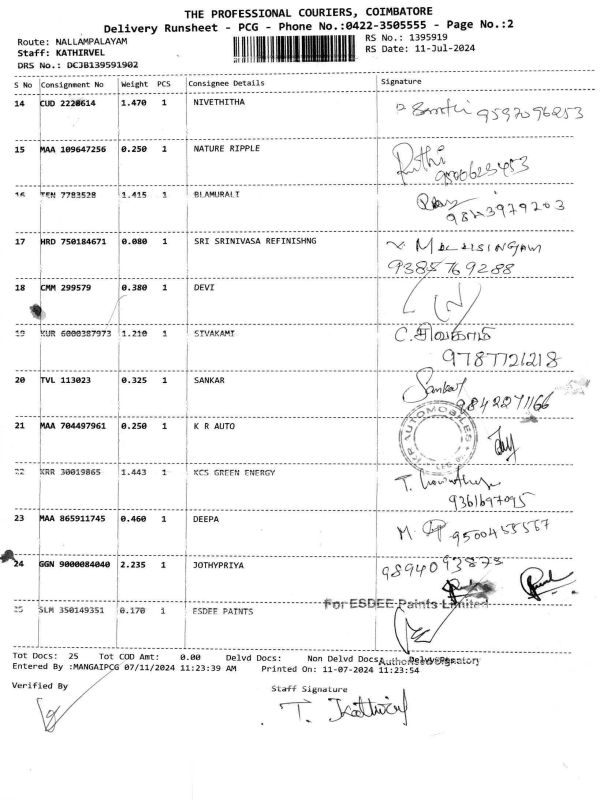 THE PROFESSIONAL COURIERS, COIMBATORE
Delivery Runsheet - PCG - Phone No.:0422-3505555 - Page No.:2
Route: NALLAMPALAYAM RS No.: 1395919
Staff: KATHIRVEL RS Date: 11-Jul-2024
DRS No.: DCJB139591902
S No Consignment No Weight PCS Consignee Details Signature
14 CUD 2228614 1.470 1 NIVETHITHA
9597096253
15 MAA 109647256 0.250 1 NATURE RIPPLE
Ruthi
9500623453
16 TEN 7783528 1.415 1 BLAMURALI
17 HRD 750184671 0.080 1 SRI SRINIVASA REFINISHNG
9385769288
18 CMM 299579 0.380 1 DEVI
19 KUR 6000387973 1.210 1 SIVAKAMI C.சிவகாமி
9787721218
20 TVL 113023 0.325 1 SANKAR Sankar
9842271166
21 MAA 704497961 0.250 1 K R AUTO
AUTOMOBILES
22 KRR 30019865 1.443 1 KCS GREEN ENERGY
9361697095
23 MAA 865911745 0.460 1 DEEPA
9500455567
24 GGN 9000084040 2.235 1 JOTHYPRIYA 9894093873
25 SLM 350149351 0.170 1 ESDEE PAINTS For ESDEE Paints Limited
Tot Docs: 25 Tot COD Amt: 0.00 Delvd Docs: Non Delvd Docs Authorised Signatory
Entered By :MANGAIPCG 07/11/2024 11:23:39 AM Printed On: 11-07-2024 11:23:54
Verified By Staff Signature
T. Kathirvel